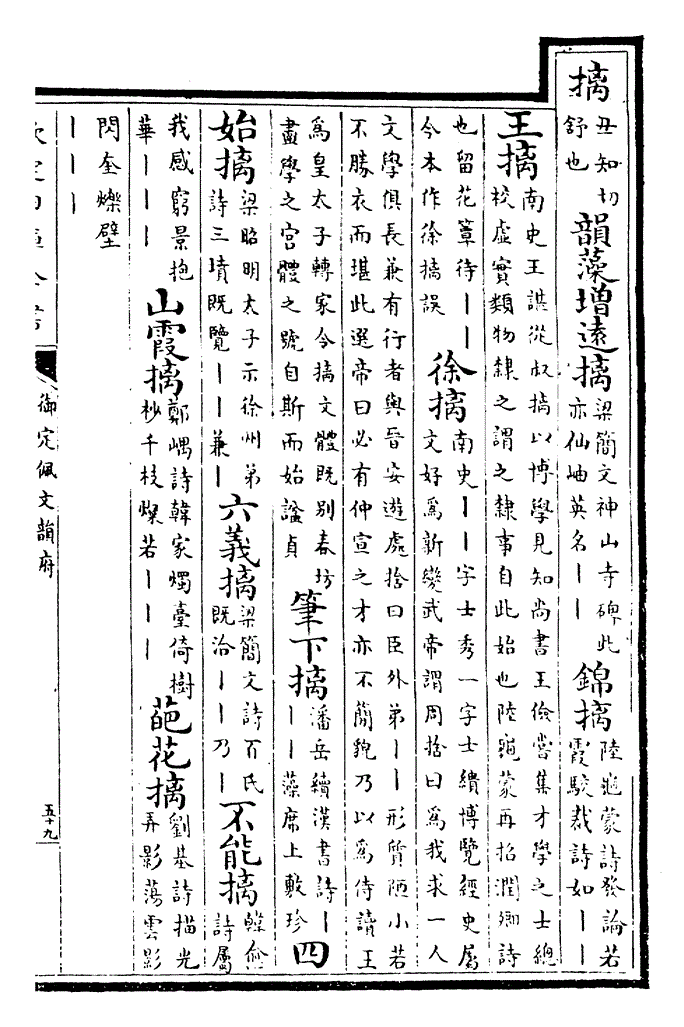 摛丑知切舒也韻藻增遠摛梁簡文神山寺碑此亦仙岫英名丨丨錦摛陸龜蒙詩發論若霞駮裁詩如丨丨
王摛南史王諶從叔摛以博學見知尚書王儉嘗集才學之士總校虛實類物隸之謂之隸事自此始也陸龜蒙再招潤卿詩
也留花簟待丨丨今本作徐摛誤徐摛南史丨丨字士秀一字士繢博覽經史屬文好爲新變武帝謂周捨曰爲我求一人
文學俱長兼有行者與晉安遊處捨曰臣外弟丨丨形質陋小若
不勝衣而堪此選帝曰必有仲宣之才亦不簡貌乃以爲侍讀王
爲皇太子轉家令摛文體既別春坊盡學之宮體之號自斯而始諡貞筆下摛潘岳續漢書詩丨丨丨藻席上敷珍四
始摛梁昭明太子示徐州弟詩三墳既覽丨丨兼丨六義摛梁簡文詩百氏既洽丨丨乃丨不能摛韓愈詩屬
我感窮景抱華丨丨丨山霞摛鄭嵎詩韓家燭臺倚樹杪千枝燦若丨丨丨葩花摛劉基詩描光弄影蕩雲影
閃奎爍壁丨丨丨
御定佩文韻府
五十九